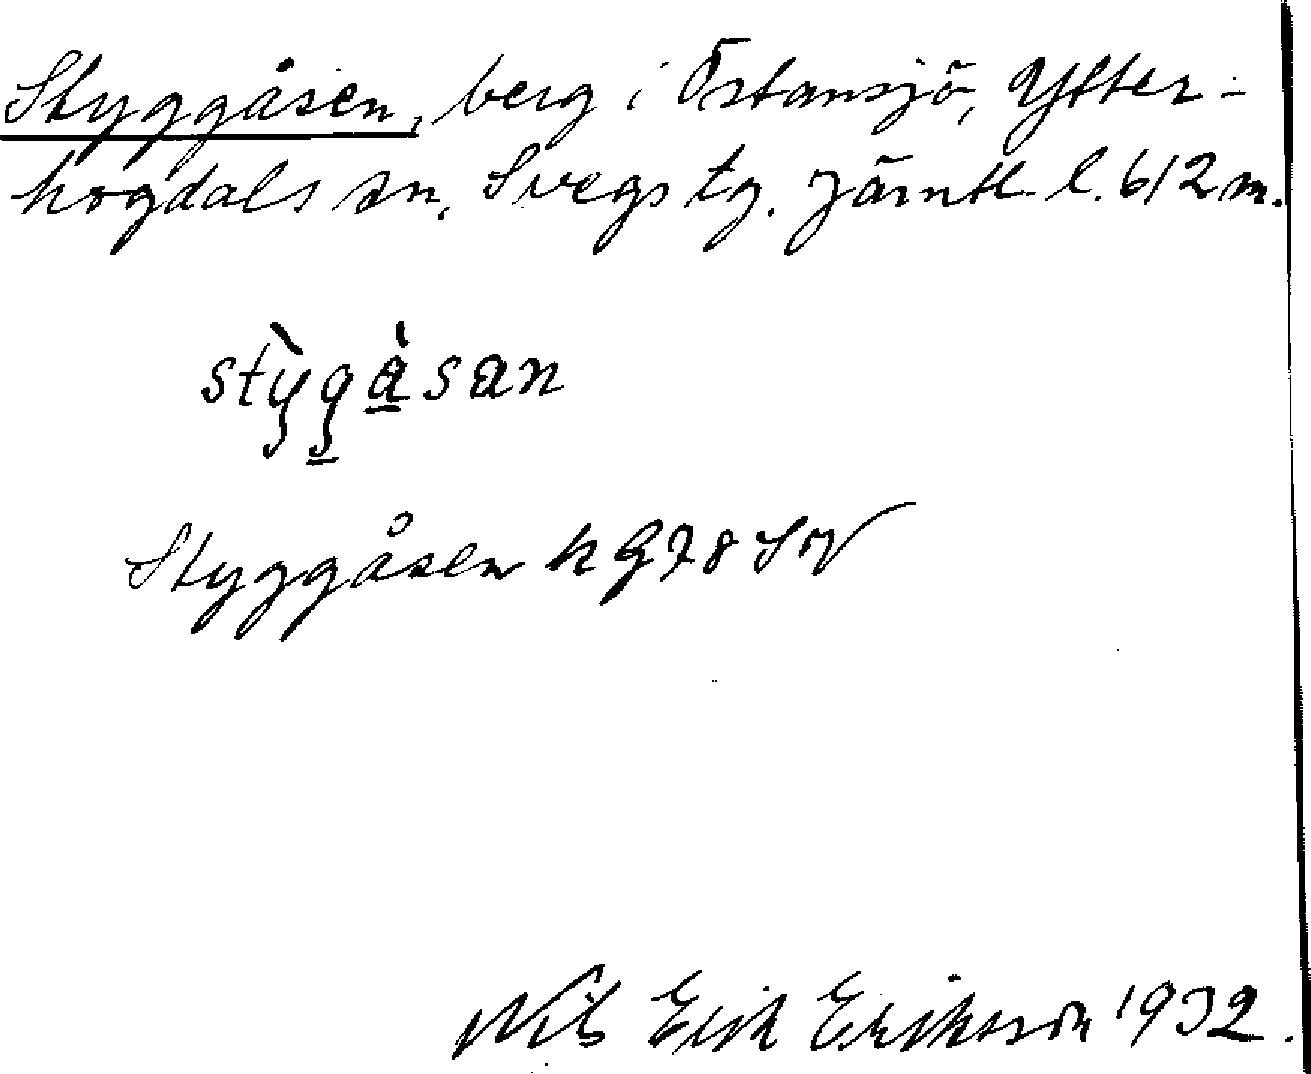 Styggåsen, berg i Östansjö, Ytter-
hogdals sn. Svegs tg. Jämtl. l. 612 m.
stỳgàsan
Styggåsen k G78 SV
Nils Erik Eriksson 1932.